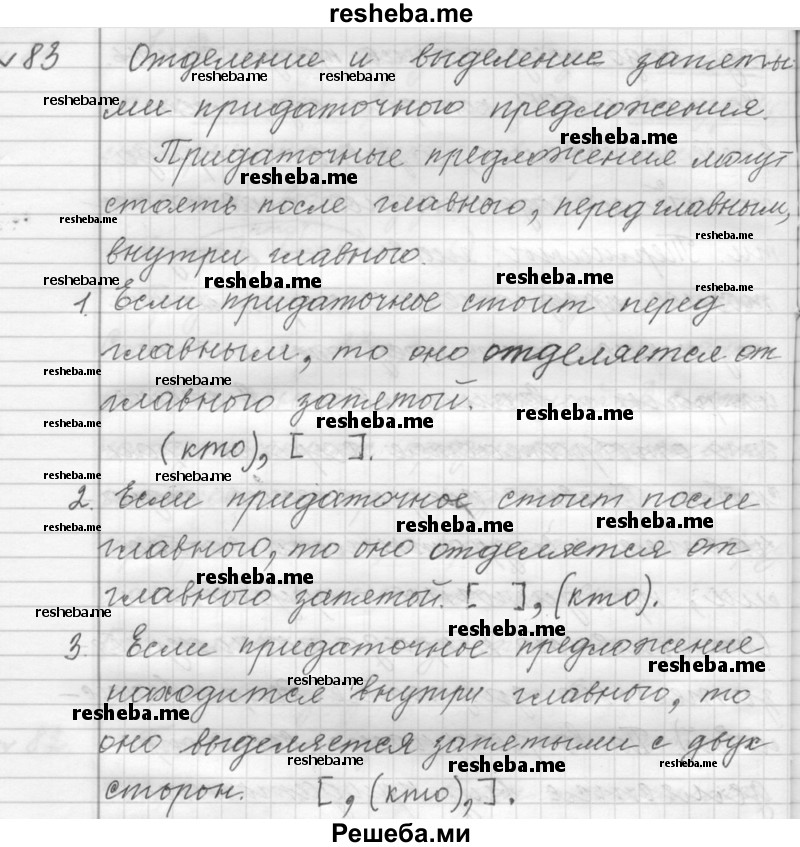 resheba.me
№83 Отделение и выделение запяты-
resheba.me resheba.me
resheba.me
ми придаточного предложения.
resheba.me
Придаточные предложения могут
resheba.me
стоять после главного, перед главным,
resheba.me
resheba.me
внутри главного.
resheba.me resheba.me resheba.me resheba.me
1. Если придаточное стоит перед
главным, то оно отделяется от
resheba.me
resheba.me
главного запятой.
resheba.me resheba.me resheba.me
(кто), [ ].
resheba.me resheba.me
2. Если придаточное стоит после
resheba.me resheba.me resheba.me
главного, то оно отделяется от
resheba.me
главного запятой. [ ], (кто).
resheba.me resheba.me
3. Если придаточное предложение
resheba.me resheba.me
находится внутри главного, то
resheba.me
оно выделяется запятыми с двух
resheba.me resheba.me resheba.me
сторон. [ , (кто), ].
Решеба.ми